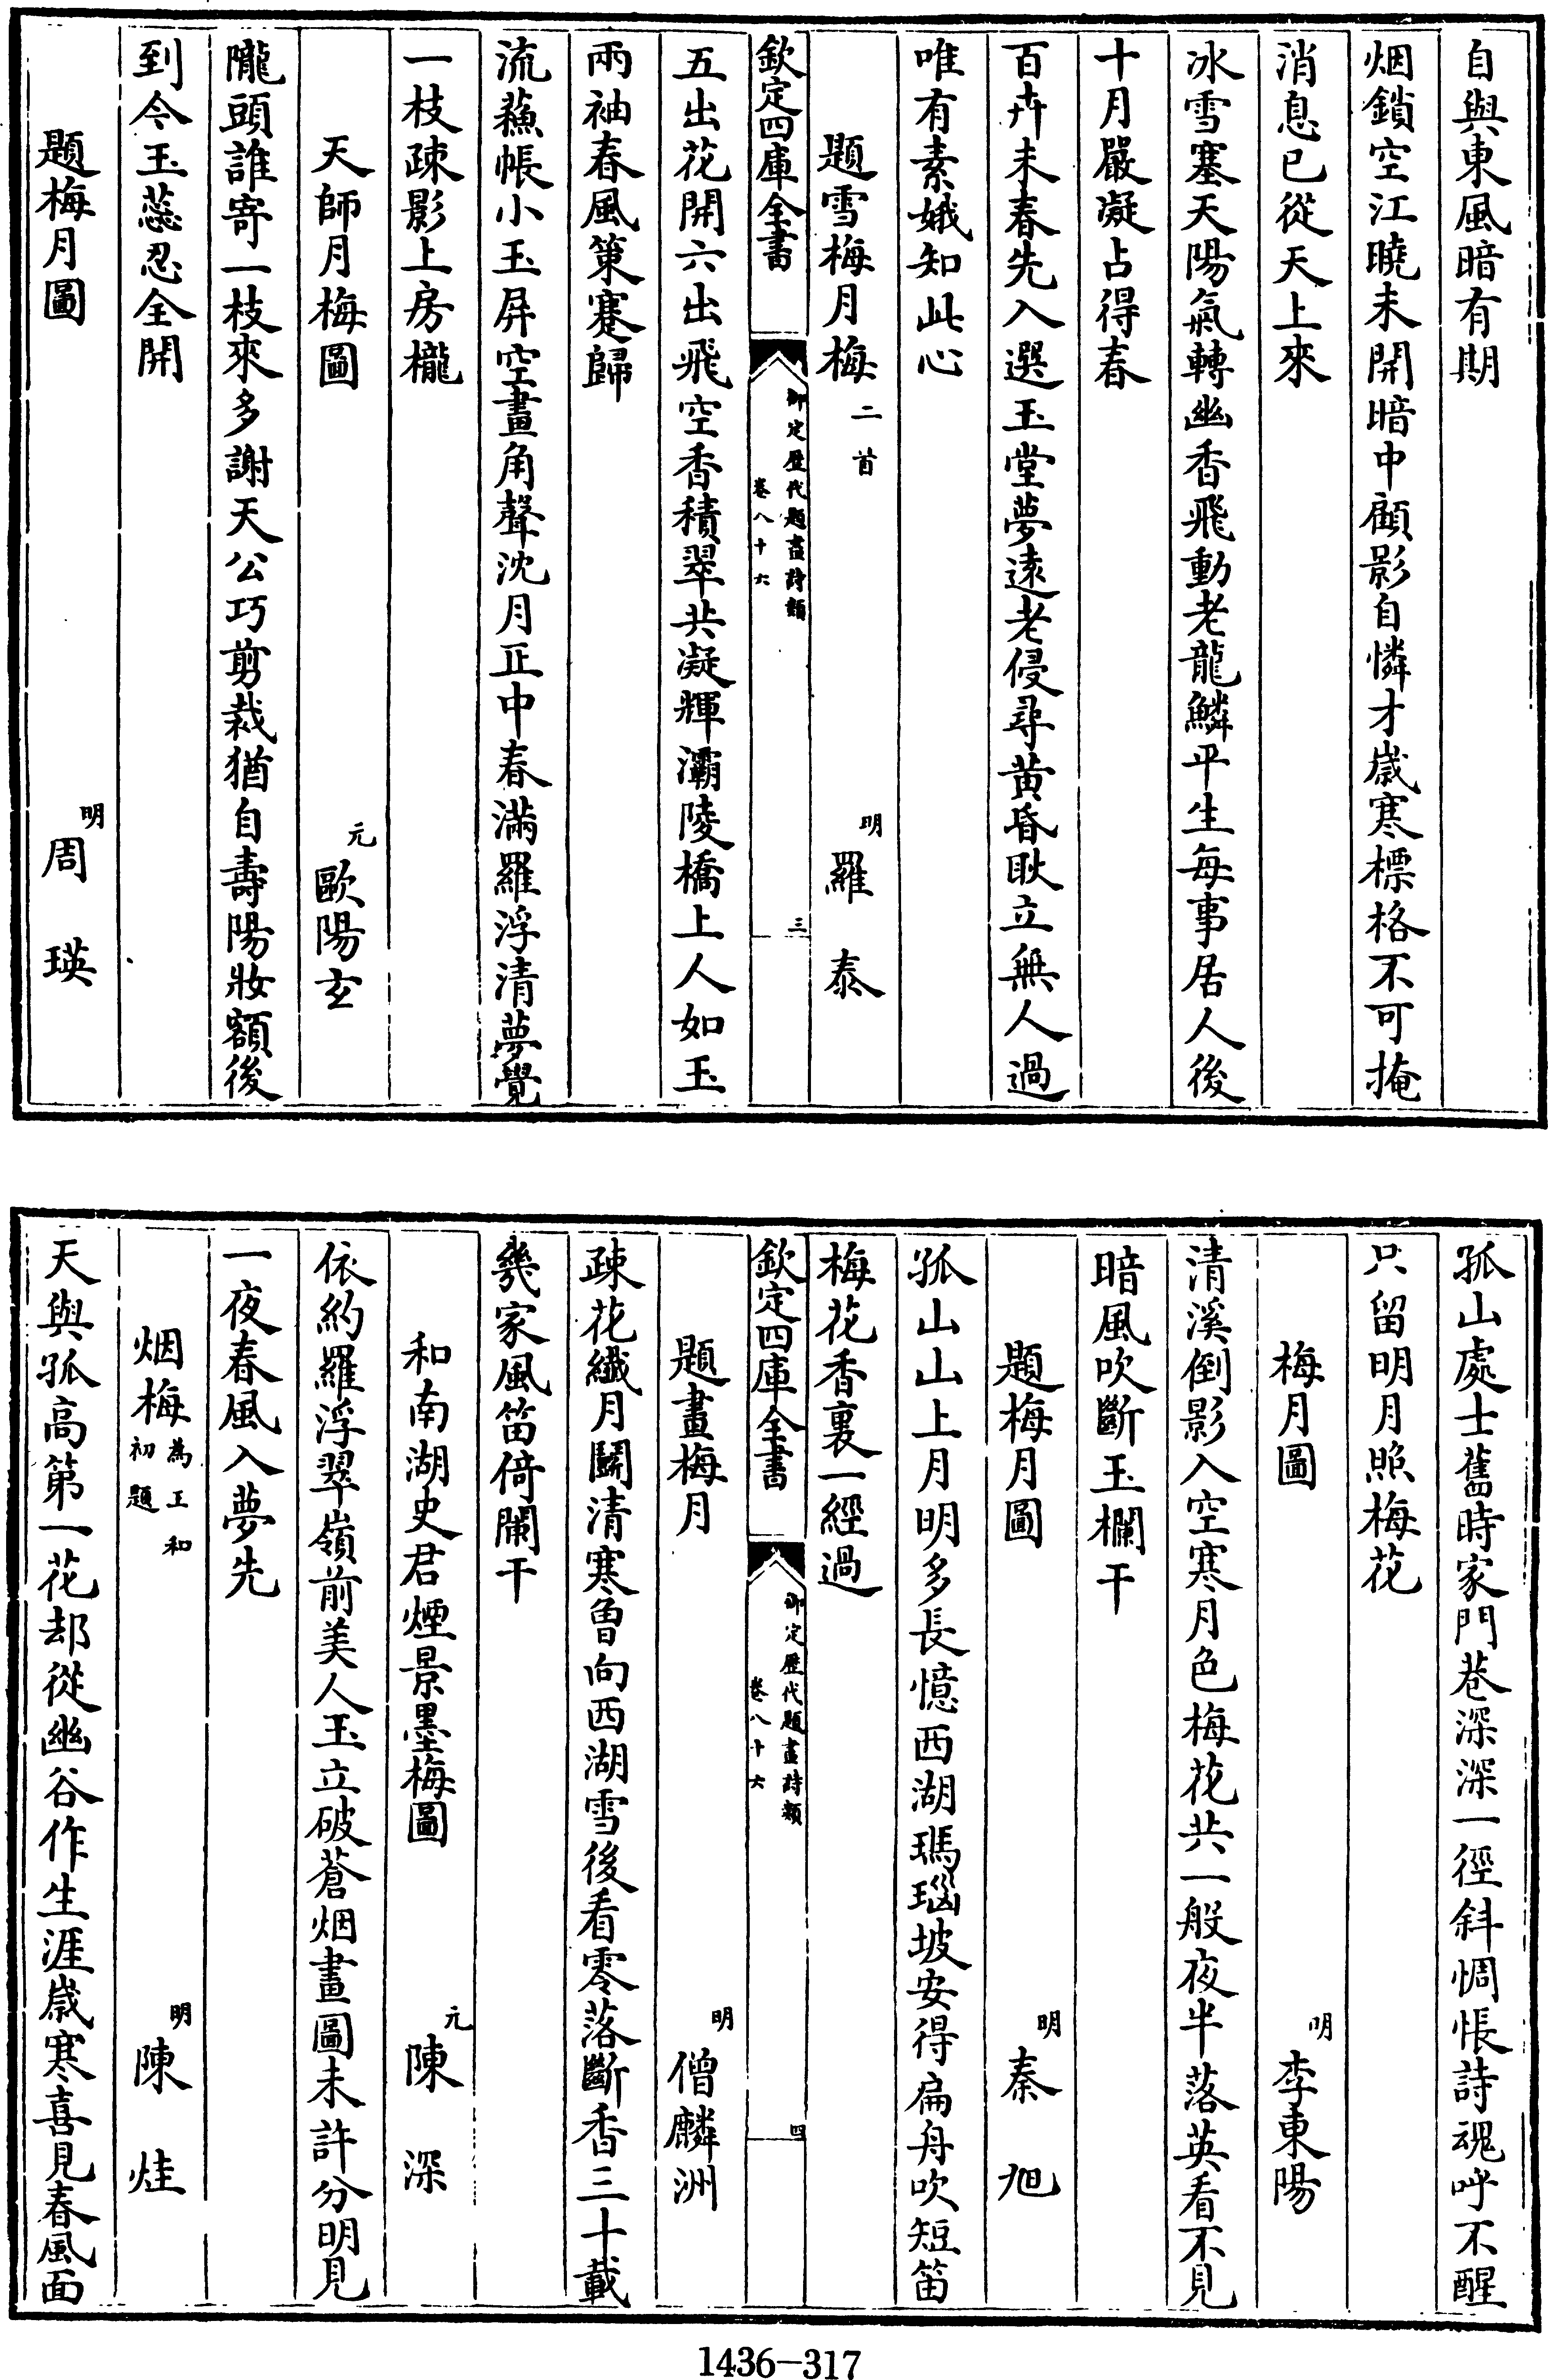 自與東風暗有期
烟鎖空江曉未開暗中顧影自憐才嵗寒標格不可掩
消息已從天上來
冰雪塞天陽氣轉幽香飛動老龍鱗平生每事居人後
十月嚴凝占得春
百卉未春先入選玉堂夢遠老侵尋黃昏耿立無人過
唯有素娥知此心
題雪梅月梅二首 明羅泰
欽定四庫全書 御定歷代題畫詩類 卷八十六 三
五出花開六出飛空香積翠共凝輝灞陵橋上人如玉
兩袖春風策蹇歸
流蘇帳小玉屏空畫角聲沈月正中春滿羅浮清夢覺
一枝疎影上房櫳
天師月梅圖 元歐陽玄
隴頭誰寄一枝來多謝天公巧剪裁猶自壽陽妝額後
到今玉蕊忍全開
題梅月圖 明周瑛
孤山處士舊時家門巷深深一徑斜惆悵詩魂呼不醒
只留明月照梅花
梅月圖 明李東陽
清溪倒影入空寒月色梅花共一般夜半落英看不見
暗風吹斷玉欄干
題梅月圖 明秦旭
孤山山上月明多長憶西湖瑪瑙坡安得扁舟吹短笛
梅花香裏一經過
欽定四庫全書 御定歷代題畫詩類 卷八十六 四
題畫梅月 明僧麟洲
疎花纖月鬭清寒曾向西湖雪後看零落斷香三十載
幾家風笛倚闌干
和南湖史君煙景墨梅圖 元陳深
依約羅浮翠嶺前美人玉立破蒼烟畫圖未許分明見
一夜春風入夢先
烟梅為王和初題 明陳烓
天與孤高第一花却從幽谷作生涯嵗寒喜見春風面
1436-317